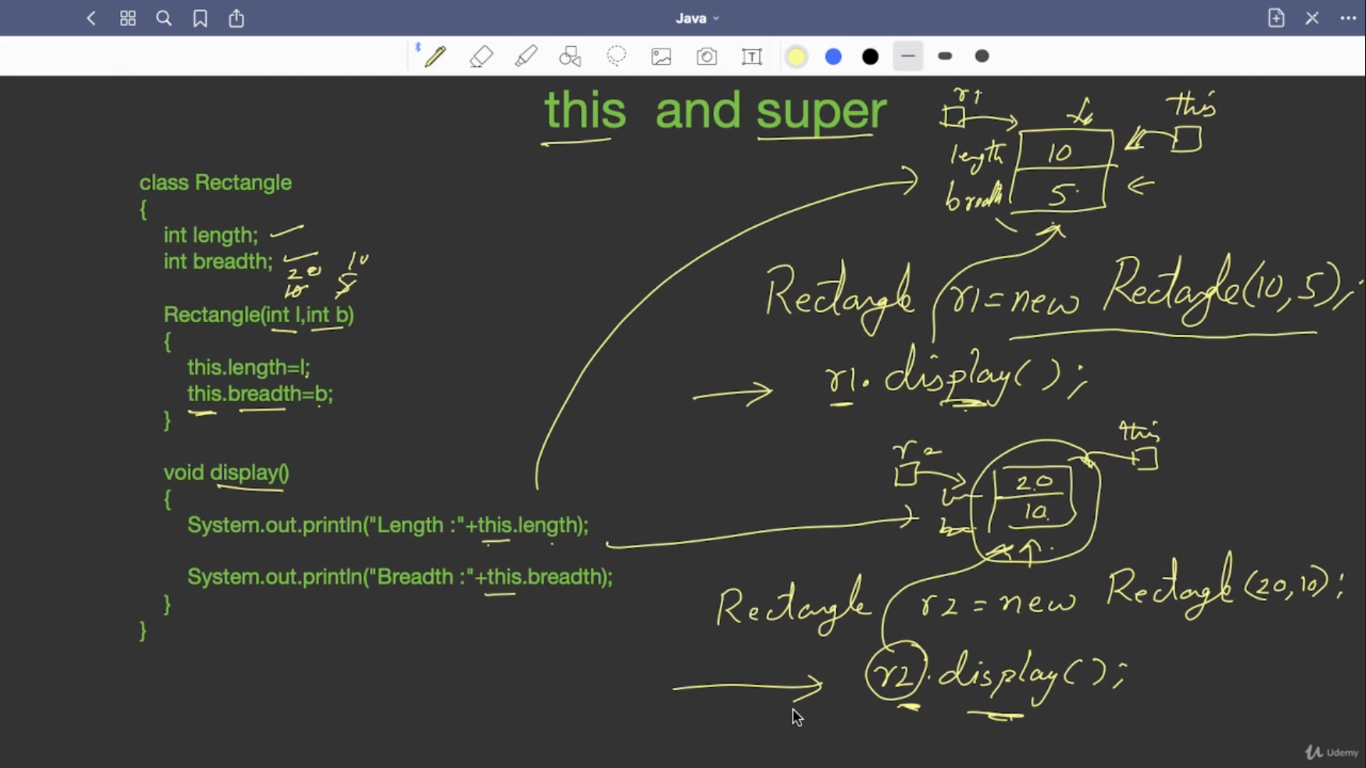 Java
this and super
r1
this
length 10
breadth 5
class Rectangle
{
int length;
int breadth;
20 10
10 5
Rectangle(int l,int b)
{
this.length=l;
this.breadth=b;
}
void display()
{
System.out.println("Length :"+this.length);
System.out.println("Breadth :"+this.breadth);
}
}
Rectangle r1 = new Rectangle(10,5);
r1.display();
r2
this
20
b 10
Rectangle r2 = new Rectangle(20,10);
r2.display();
Udemy